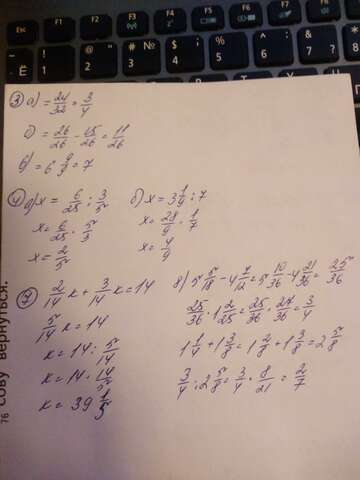 Esc F1 F2 F3 F4 F5 F6 F7
Ё ! 1 @ " 2 # № 3 $ ; 4 % 5 ^ : 6 & ? 7
3) а) = 24/32 = 3/4
б) = 26/26 - 15/26 = 11/26
в) = 6 9/9 = 7
4) а) x = 6/25 : 3/5
x = 6/25 · 5/3
x = 2/5
б) x = 3 1/9 : 7
x = 28/9 · 1/7
x = 4/9
7) 2/14 к + 3/14 к = 14
5/14 к = 14
к = 14 : 5/14
к = 14 · 14/5
к = 39 1/5
8) 5 5/18 - 4 7/12 = 5 10/36 - 4 21/36 = 25/36
25/36 · 1 2/25 = 25/36 · 27/25 = 3/4
1 1/4 + 1 3/8 = 1 2/8 + 1 3/8 = 2 5/8
3/4 : 2 5/8 = 3/4 · 8/21 = 2/7
76
сову вернуться.